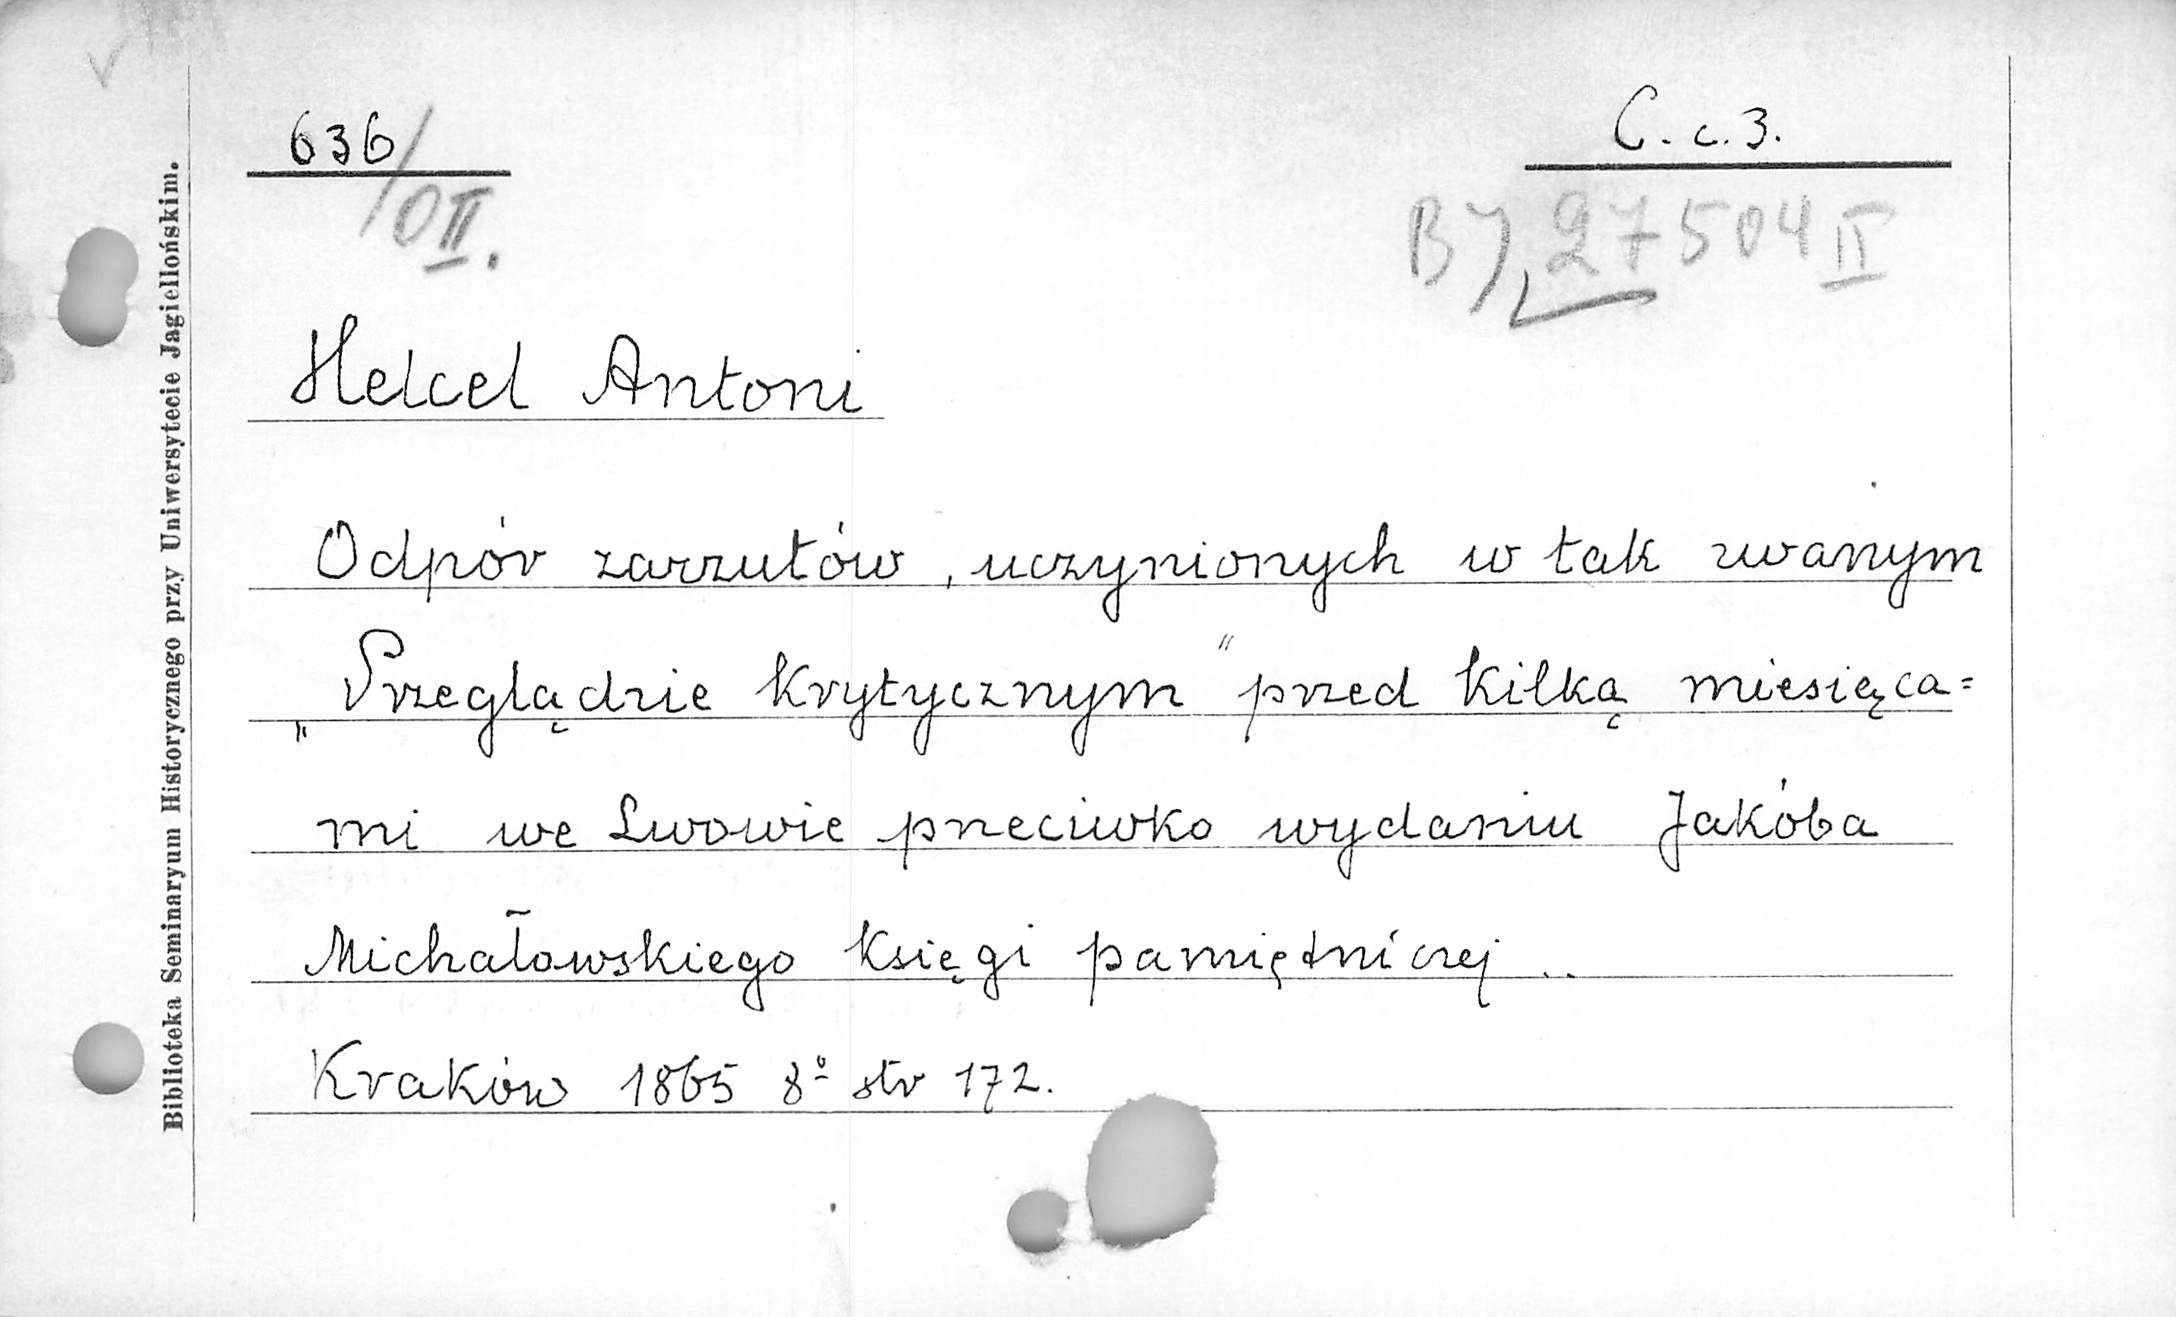 636/OII.
C. c. 3.
BJ 27504 II
Helcel Antoni
Odpór zarzutów, uczynionych w tak zwanym
„Przeglądzie krytycznym" przed kilką miesięca=
mi we Lwowie przeciwko wydaniu Jakóba
Michałowskiego księgi pamiętniczej ..
Kraków 1865 8º str 172.
Biblioteka Seminaryum Historycznego przy Uniwersytecie Jagiellońskim.